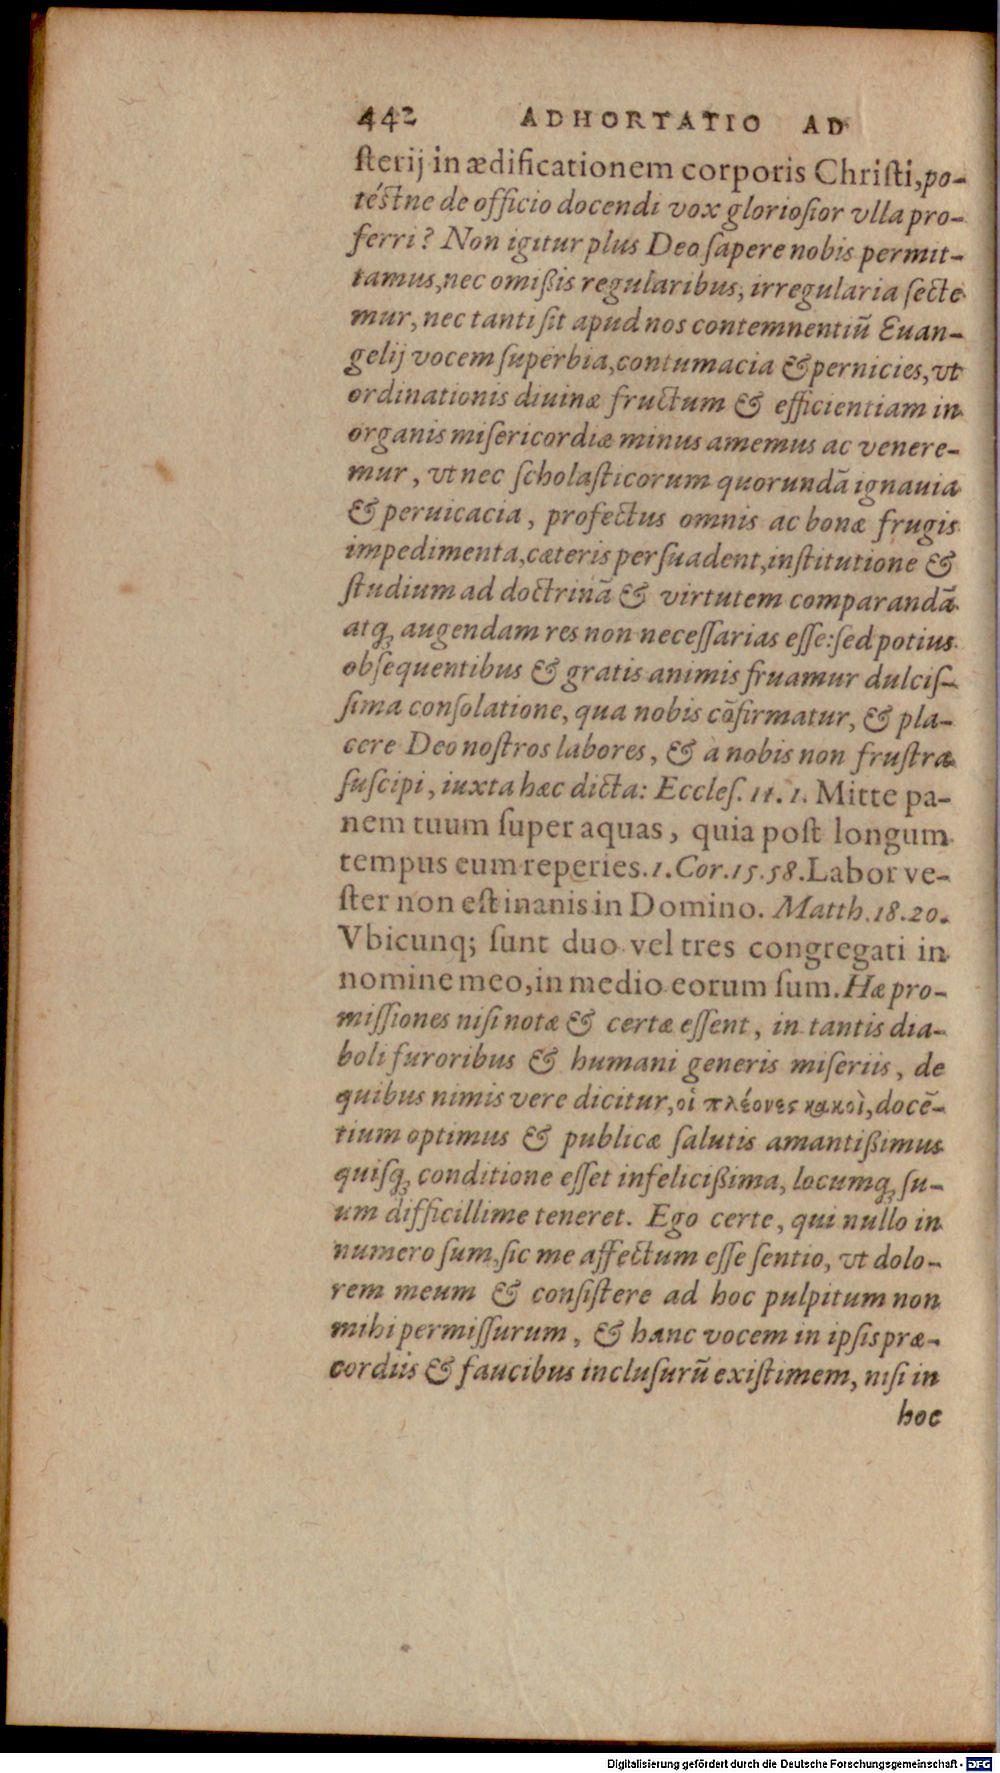 442 ADHORTATIO AD
ſterij in ædificationem corporis Chriſti, po-
téstne de officio docendi vox glorioſior vlla pro-
ferri? Non igitur plus Deo ſapere nobis permit-
tamus, nec omißis regularibus, irregularia ſecte
mur, nec tanti ſit apud nos contemnentiũ Euan-
gelij vocem ſuperbia, contumacia & pernicies, vt
ordinationis diuinæ fructum & efficientiam in
organis miſericordiæ minus amemus ac venere-
mur, vt nec ſcholaſticorum quorundã ignauia
& peruicacia, profectus omnis ac bonæ frugis
impedimenta, cæteris perſuadent, inſtitutione &
ſtudium ad doctrinã & virtutem comparandã
atq; augendam res non neceſſarias eſſe: ſed potius
obſequentibus & gratis animis fruamur dulciſ-
ſima conſolatione, qua nobis cõfirmatur, & pla-
cere Deo noſtros labores, & à nobis non fruſtra
ſuſcipi, iuxta hæc dicta: Eccleſ. 11. 1. Mitte pa-
nem tuum ſuper aquas, quia poſt longum
tempus eum reperies. 1. Cor. 15. 58. Labor ve-
ſter non eſt inanis in Domino. Matth. 18. 20.
Vbicunq; ſunt duo vel tres congregati in
nomine meo, in medio eorum ſum. Hæ pro-
miſſiones niſi notæ & certæ eſſent, in tantis dia-
boli furoribus & humani generis miſeriis, de
quibus nimis vere dicitur, οἱ πλέονες κακοὶ, docẽ-
tium optimus & publicæ ſalutis amantißimus
quiſq; conditione eſſet infelicißima, locumq; ſu-
um difficillime teneret. Ego certe, qui nullo in
numero ſum, ſic me affectum eſſe ſentio, vt dolo-
rem meum & conſiſtere ad hoc pulpitum non
mihi permiſſurum, & hanc vocem in ipſis præ-
cordiis & faucibus incluſurũ exiſtimem, niſi in
hoc
Digitalisierung gefördert durch die Deutsche Forschungsgemeinschaft - DFG